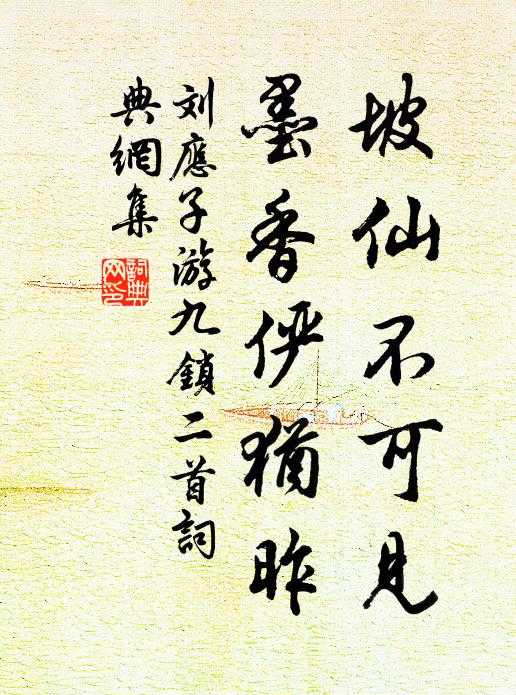 坡仙不可見
墨香俨猶昨
刘應子游九鎖二首詞
典網集
詞典
网印